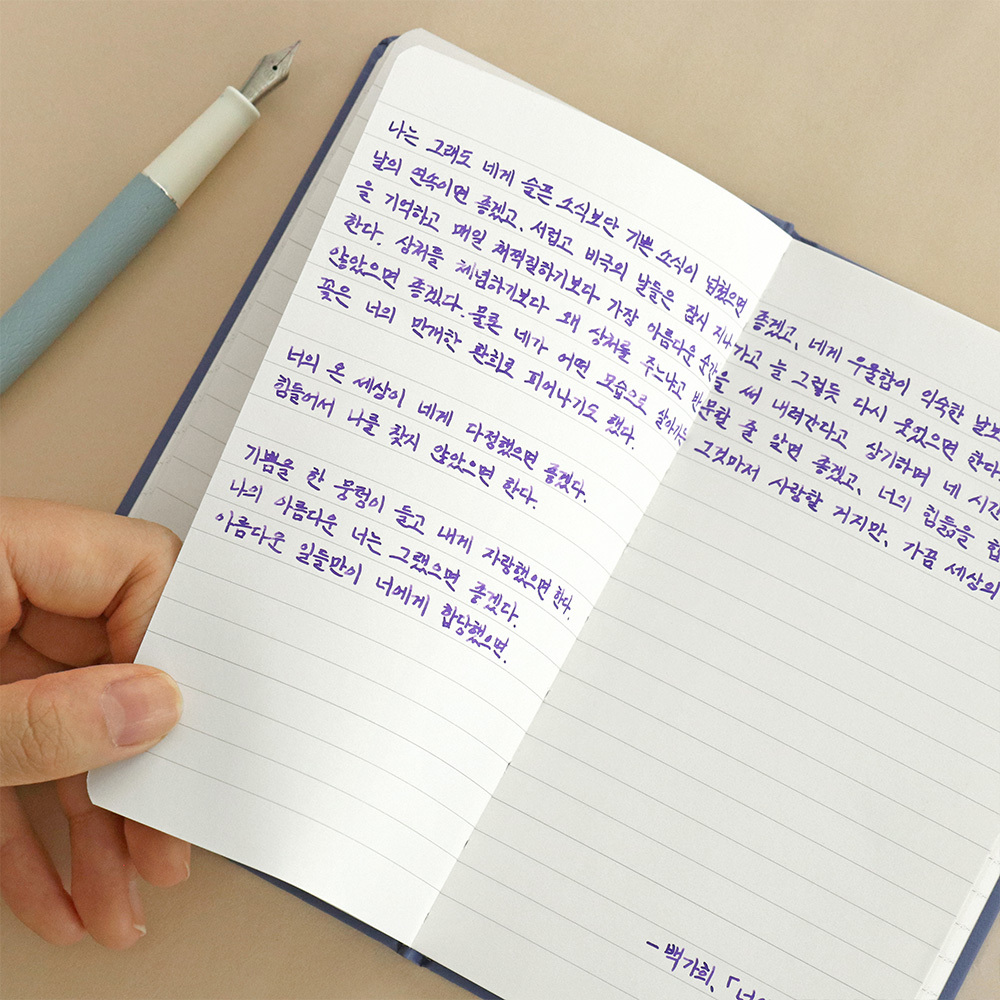 나는 그래도 네게 슬픈 소식보단 기쁜 소식이 좋겠고, 네게 우울함이 익숙한
날의 연속이면 좋겠고, 서럽고 비극의 날들은 잠시 지나가고 늘 그렇듯 다시 웃었으면 한다.
을 기억하고 매일 채찍질하기보다 가장 아름다운 순간을 써 내려간다고 상기하며 네 시간
한다. 상처를 체념하기보다 왜 상처를 주느냐고 반문할 줄 알면 좋겠고, 너의 힘듦을
않았으면 좋겠다. 물론 네가 어떤 모습으로 살아가든 그것마저 사랑할 거지만, 가끔 세상의
꽃은 너의 만개한 환희로 피어나기도 했다.
너의 온 세상이 네게 다정했으면 좋겠다.
힘들어서 나를 찾지 않았으면 한다.
기쁨을 한 뭉텅이 들고 내게 자랑했으면 한다.
나의 아름다운 너는 그랬으면 좋겠다.
아름다운 일들만이 너에게 합당했으면.
- 백가희, 「너의